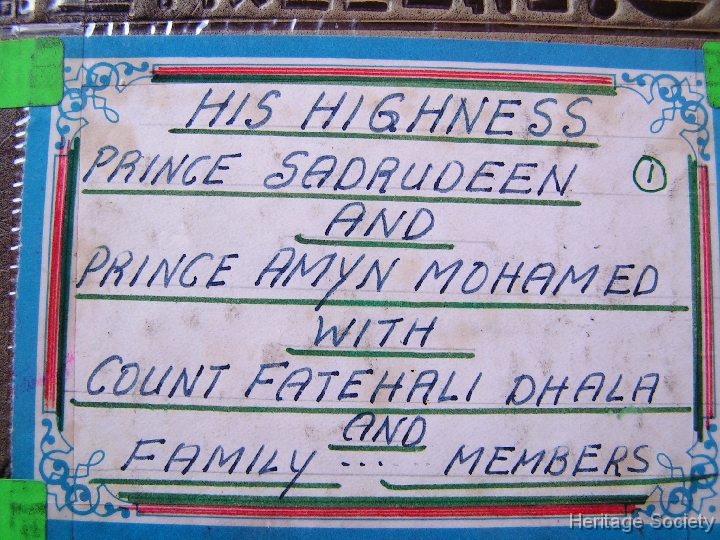 HIS HIGHNESS
PRINCE SADRUDEEN
1
AND
PRINCE AMYN MOHAMED
WITH
COUNT FATEHALI DHALA
AND
FAMILY ... ... MEMBERS
Heritage Society